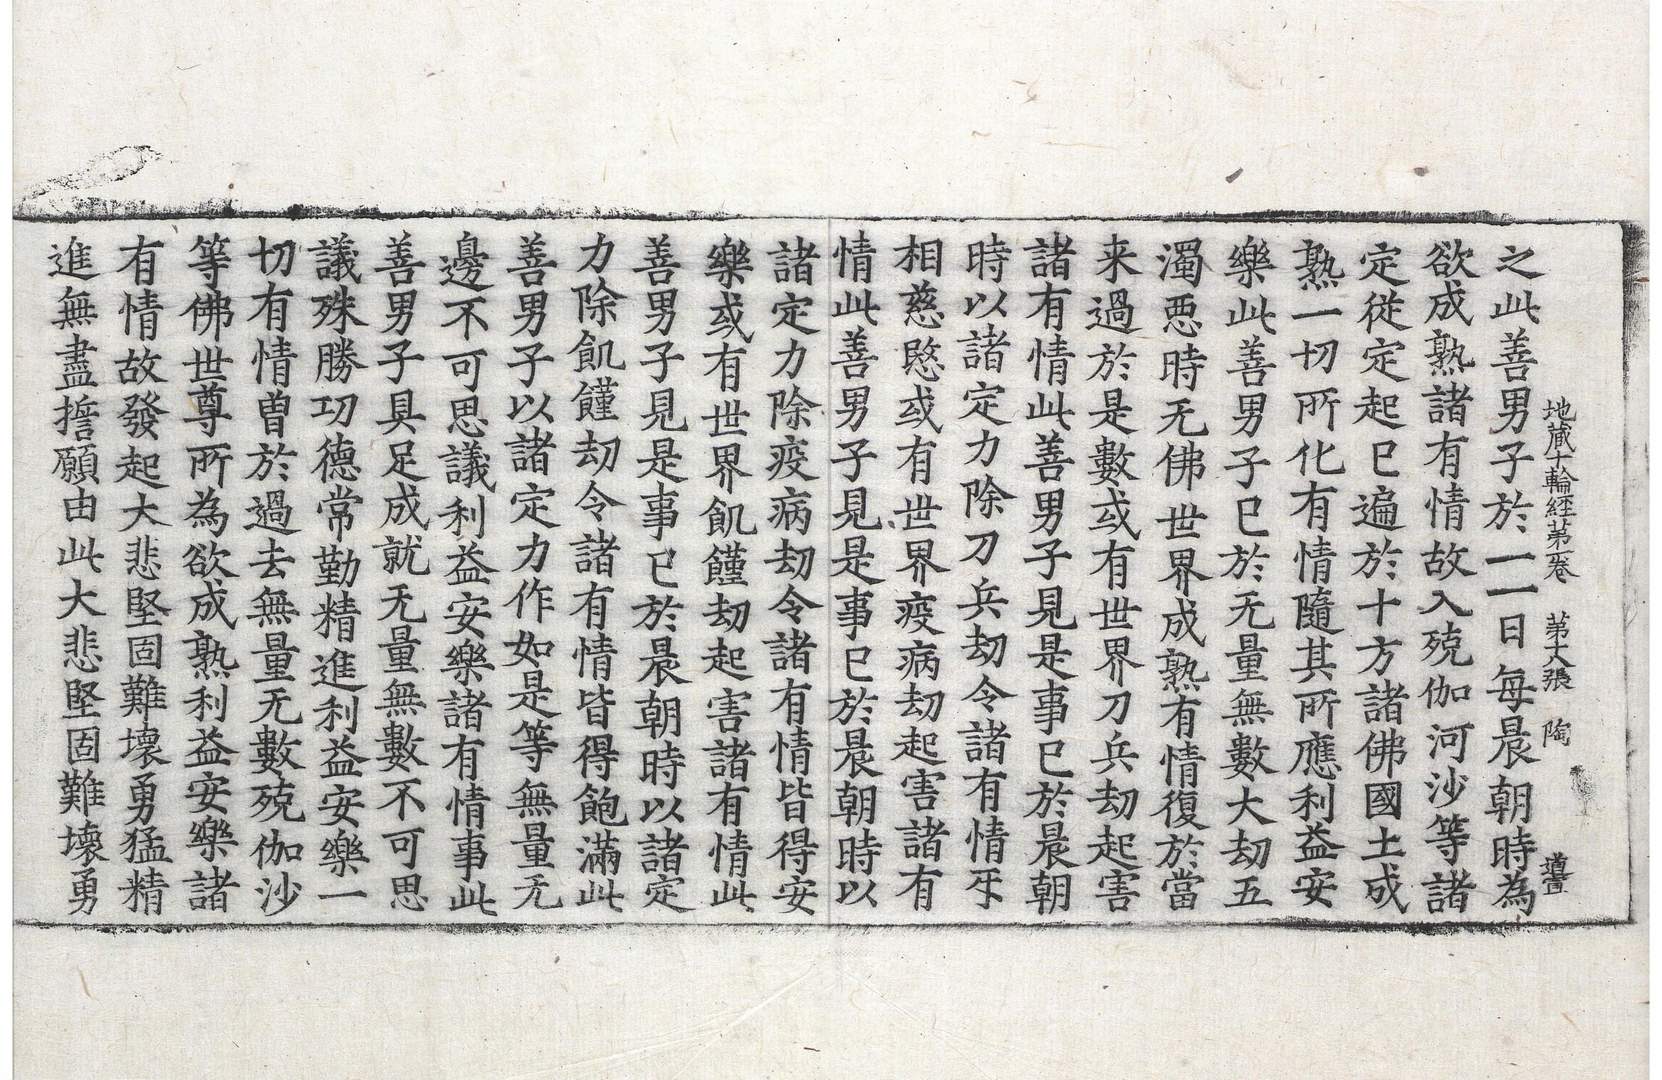 地藏十輪經苐一卷 苐六張 陶
之此善男子於一一日每晨朝時為
欲成熟諸有情故入殑伽河沙等諸
定從定起已遍於十方諸佛國土成
熟一切所化有情隨其所應利益安
樂此善男子已於无量無數大劫五
濁惡時无佛世界成熟有情復於當
来過於是數或有世界刀兵劫起害
諸有情此善男子見是事已於晨朝
時以諸定力除刀兵劫令諸有情互
相慈愍或有世界疫病劫起害諸有
情此善男子見是事已於晨朝時以
諸定力除疫病劫令諸有情皆得安
樂或有世界飢饉劫起害諸有情此
善男子見是事已於晨朝時以諸定
力除飢饉劫令諸有情皆得飽滿此
善男子以諸定力作如是等無量无
邊不可思議利益安樂諸有情事此
善男子具足成就无量無數不可思
議殊勝功德常勤精進利益安樂一
切有情曽於過去無量无數殑伽沙
等佛世尊所為欲成熟利益安樂諸
有情故發起大悲堅固難壞勇猛精
進無盡誓願由此大悲堅固難壞勇